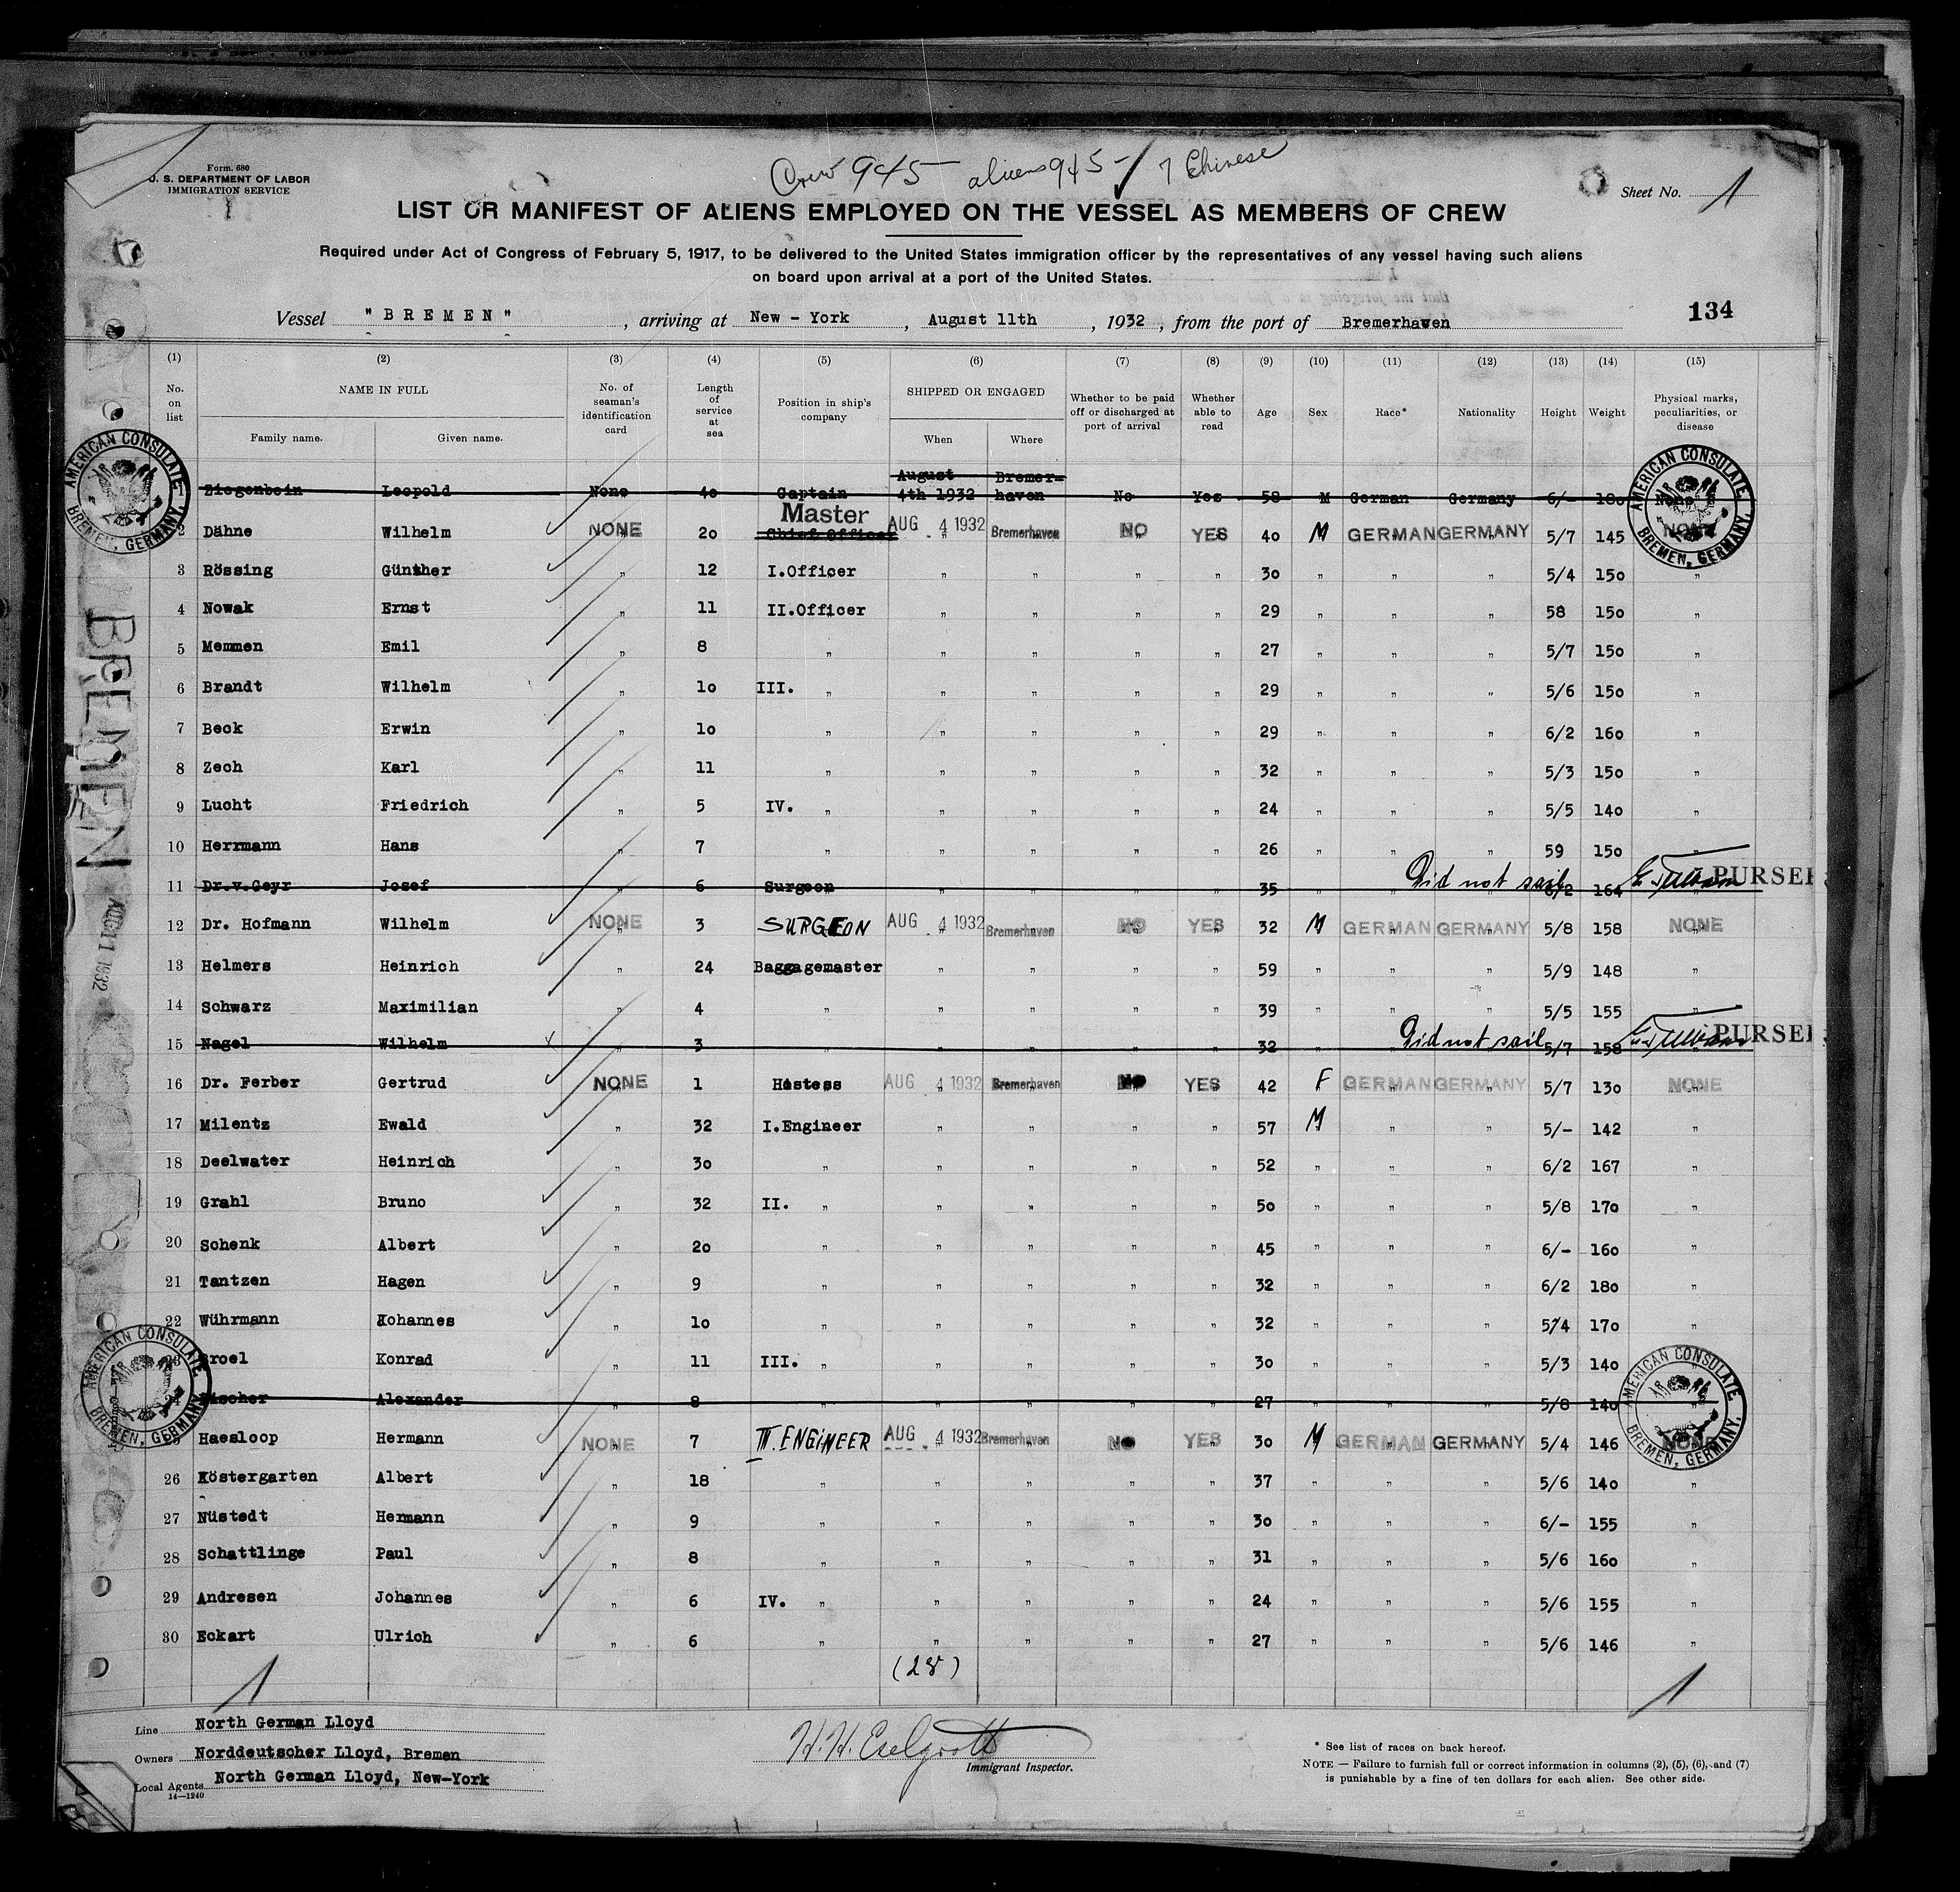 Crew 945 aliens 945 - 7 Chinese
Form. 680
U. S. DEPARTMENT OF LABOR
IMMIGRATION SERVICE
Sheet No. 1
LIST OR MANIFEST OF ALIENS EMPLOYED ON THE VESSEL AS MEMBERS OF CREW
Required under Act of Congress of February 5, 1917, to be delivered to the United States immigration officer by the representatives of any vessel having such aliens
on board upon arrival at a port of the United States.
Vessel "BREMEN", arriving at New - York, August 11th, 1932, from the port of Bremerhaven
134
(1) (2) (3) (4) (5) (6) (7) (8) (9) (10) (11) (12) (13) (14) (15)
No. on list NAME IN FULL Family name. Given name. No. of seaman's identification card Length of service at sea Position in ship's company SHIPPED OR ENGAGED When Where Whether to be paid off or discharged at port of arrival Whether able to read Age Sex Race* Nationality Height Weight Physical marks, peculiarities, or disease
Ziegenbein Leopold None 40 Captain August 4th 1932 Bremer-haven No Yes 58 M German Germany 6/- 180 None
2 Dähne Wilhelm NONE 20 Chief Officer Master AUG 4 1932 Bremerhaven NO YES 40 M GERMAN GERMANY 5/7 145 NONE
3 Rössing Günther " 12 I.Officer " " " " 30 " " " 5/4 150 "
4 Nowak Ernst " 11 II.Officer " " " " 29 " " " 58 150 "
5 Memmen Emil " 8 " " " " " 27 " " " 5/7 150 "
6 Brandt Wilhelm " 10 III. " " " " " 29 " " " 5/6 150 "
7 Beck Erwin " 10 " " " " " 29 " " " 6/2 160 "
8 Zech Karl " 11 " " " " " 32 " " " 5/3 150 "
9 Lucht Friedrich " 5 IV. " " " " " 24 " " " 5/5 140 "
10 Herrmann Hans " 7 " " " " " 26 " " " 59 150 "
11 Dr.v.Geyr Josef " 6 Surgeon " " " " 35 " Did not sail 6/2 164 PURSER
12 Dr. Hofmann Wilhelm NONE 3 SURGEON AUG 4 1932 Bremerhaven NO YES 32 M GERMAN GERMANY 5/8 158 NONE
13 Helmers Heinrich " 24 Baggagemaster " " " " 59 " " " 5/9 148 "
14 Schwarz Maximilian " 4 " " " " " 39 " " " 5/5 155 "
15 Nagel Wilhelm " 3 " " " " " 32 " Did not sail 5/7 158 PURSER
16 Dr. Ferber Gertrud NONE 1 Hostess AUG 4 1932 Bremerhaven NO YES 42 F GERMAN GERMANY 5/7 130 NONE
17 Milentz Ewald " 32 I.Engineer " " " " 57 M " " 5/- 142 "
18 Deelwater Heinrich " 30 " " " " " 52 " " " 6/2 167 "
19 Grahl Bruno " 32 II. " " " " " 50 " " " 5/8 170 "
20 Schenk Albert " 20 " " " " " 45 " " " 6/- 160 "
21 Tantzen Hagen " 9 " " " " " 32 " " " 6/2 180 "
22 Wührmann Johannes " 10 " " " " " 32 " " " 5/4 170 "
23 Broel Konrad " 11 III. " " " " " 30 " " " 5/3 140 "
24 Fischer Alexander " 8 " " " " " 27 " " " 5/8 140 "
25 Haesloop Hermann NONE 7 III. ENGINEER AUG 4 1932 Bremerhaven NO YES 30 M GERMAN GERMANY 5/4 146 NONE
26 Köstergarten Albert " 18 " " " " " 37 " " " 5/6 140 "
27 Nüstedt Hermann " 9 " " " " " 30 " " " 6/- 155 "
28 Schattlinge Paul " 8 " " " " " 31 " " " 5/6 160 "
29 Andresen Johannes " 6 IV. " " " " " 24 " " " 5/6 155 "
30 Eckart Ulrich " 6 " " " " " 27 " " " 5/6 146 "
(28)
1 1
Line North German Lloyd
Owners Norddeutscher Lloyd, Bremen
Local Agents North German Lloyd, New-York
14—1240
Immigrant Inspector.
* See list of races on back hereof.
NOTE — Failure to furnish full or correct information in columns (2), (5), (6), and (7)
is punishable by a fine of ten dollars for each alien. See other side.
BREMEN
AUG 11 1932
AMERICAN CONSULATE BREMEN, GERMANY.
AMERICAN CONSULATE BREMEN, GERMANY.
AMERICAN CONSULATE BREMEN, GERMANY.
AMERICAN CONSULATE BREMEN, GERMANY.